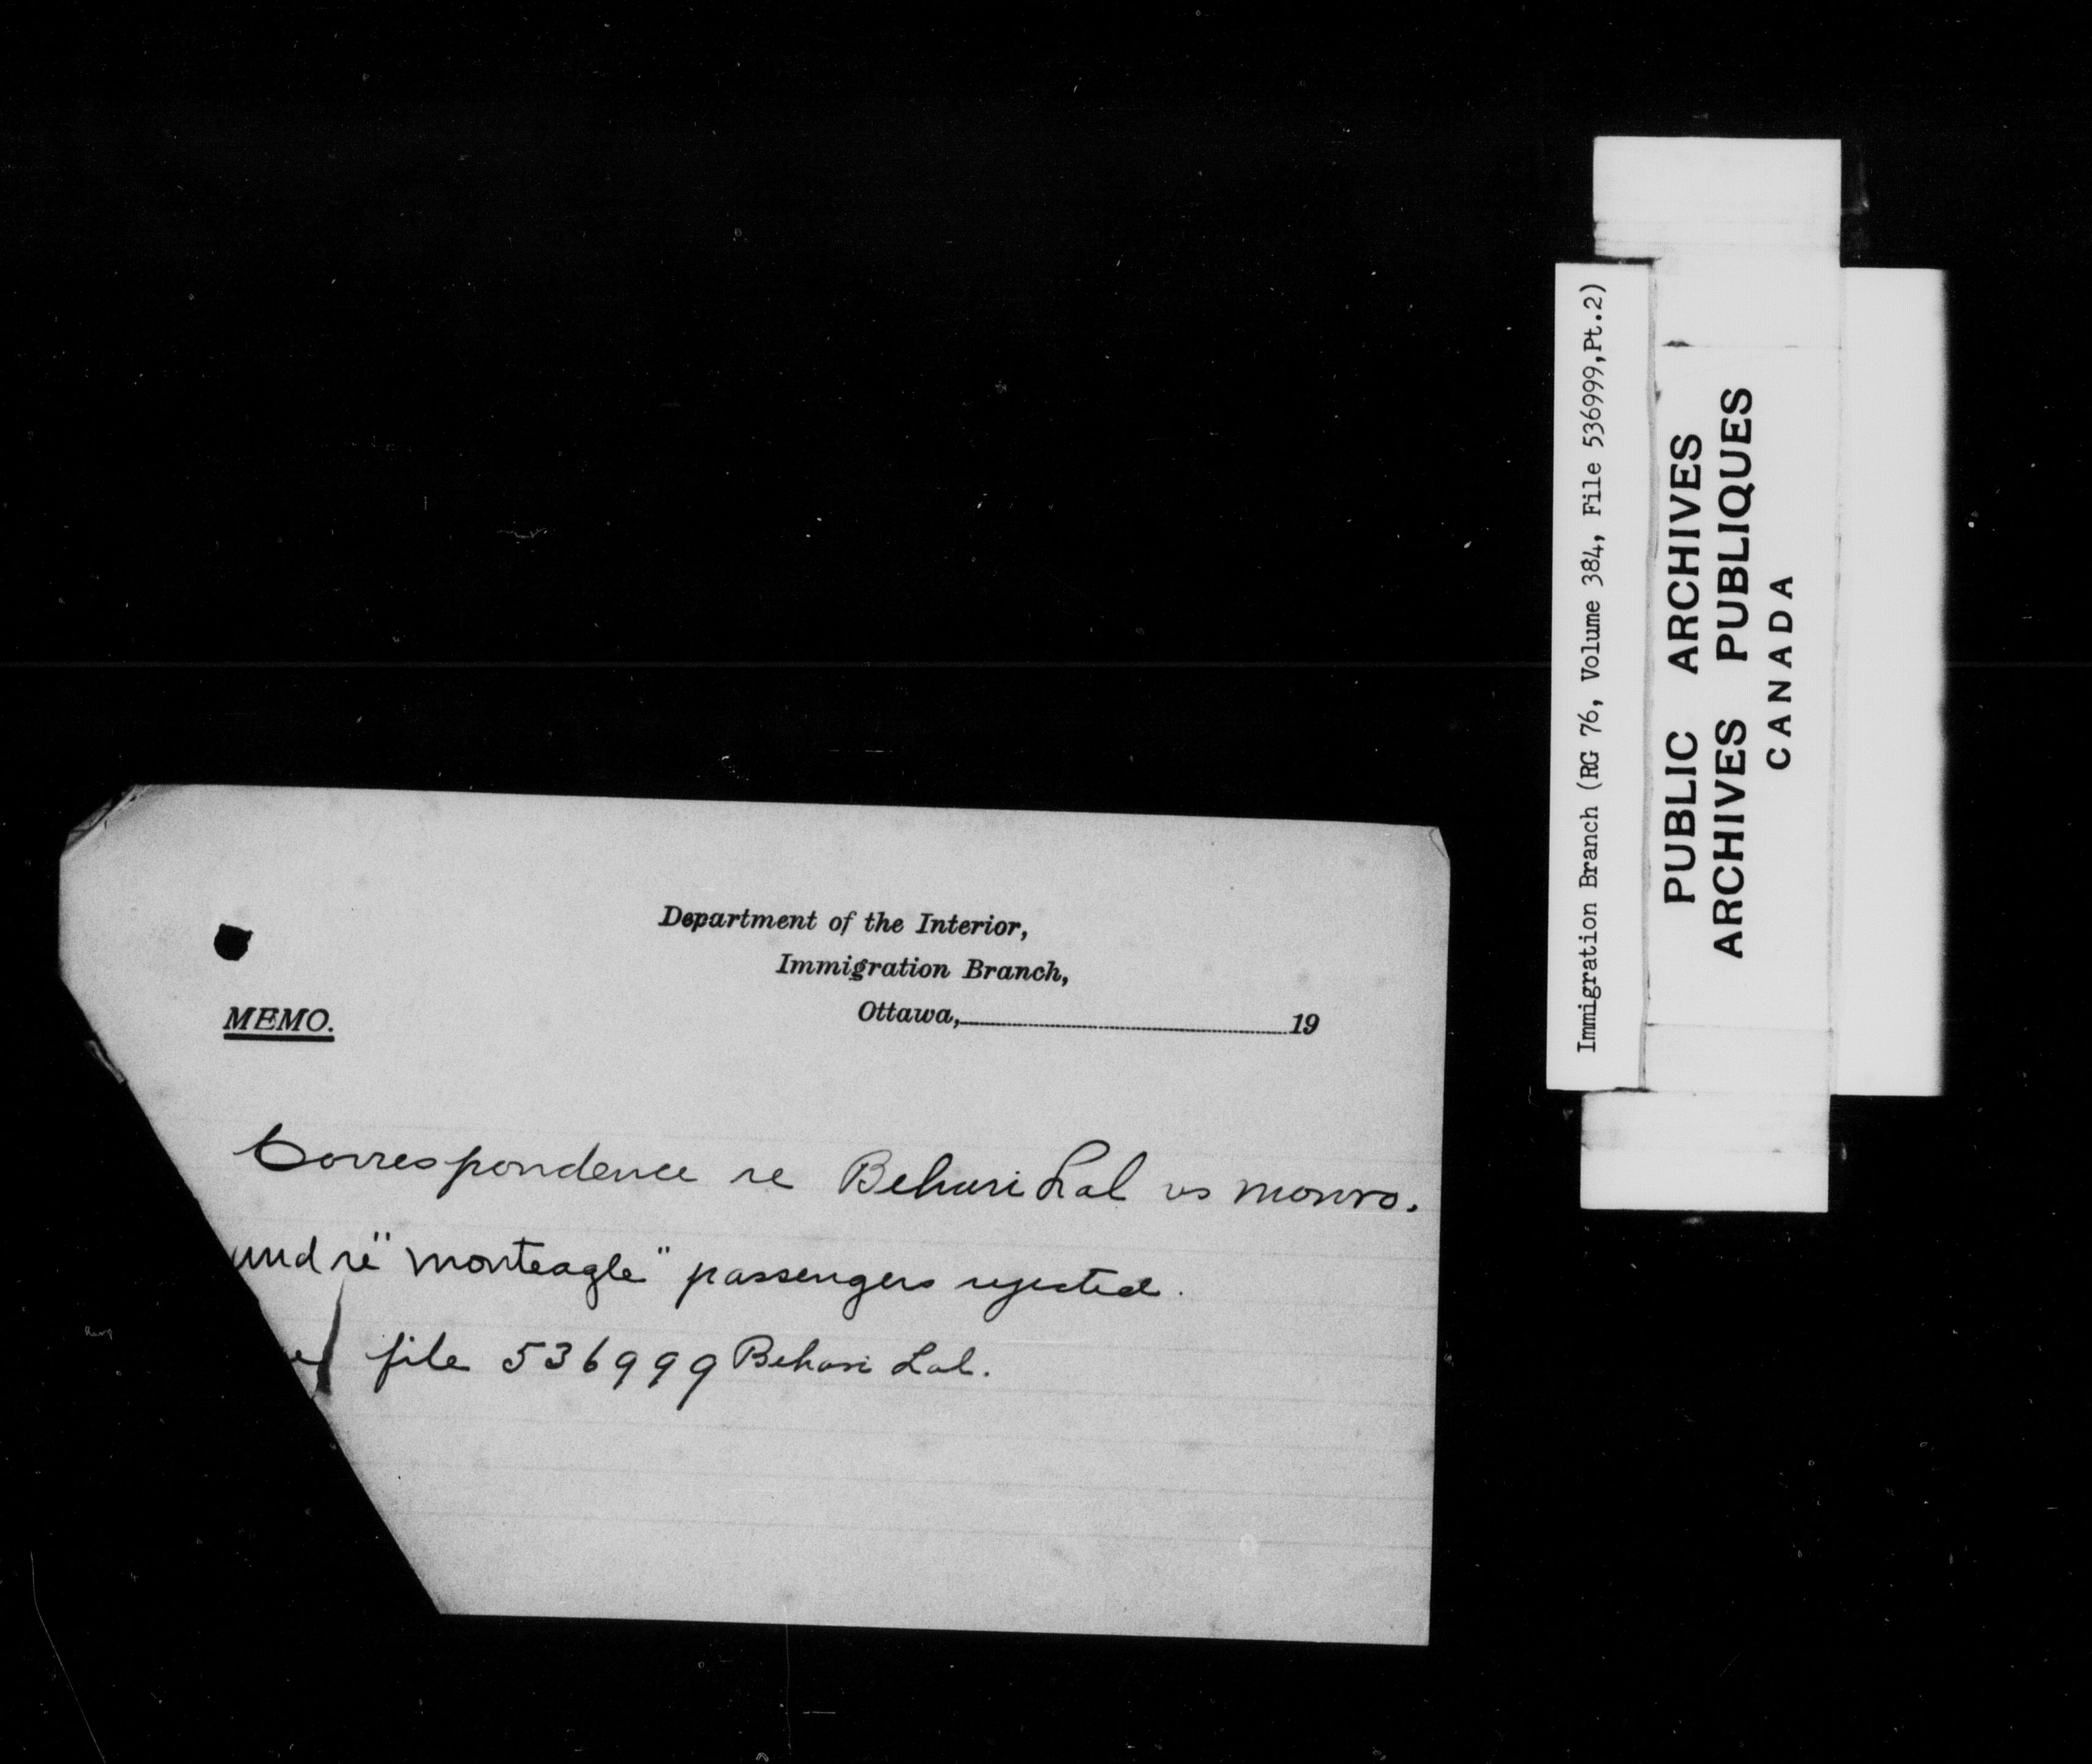 Department of the Interior,
Immigration Branch,
Ottawa, 19
MEMO.
Correspondence re Behari Lal vs Monro.
and re "Monteagle" passengers rejected.
file 536999 Behari Lal.
Immigration Branch (RG 76, Volume 384, File 536999,Pt.2)
PUBLIC ARCHIVES
ARCHIVES PUBLIQUES
CANADA